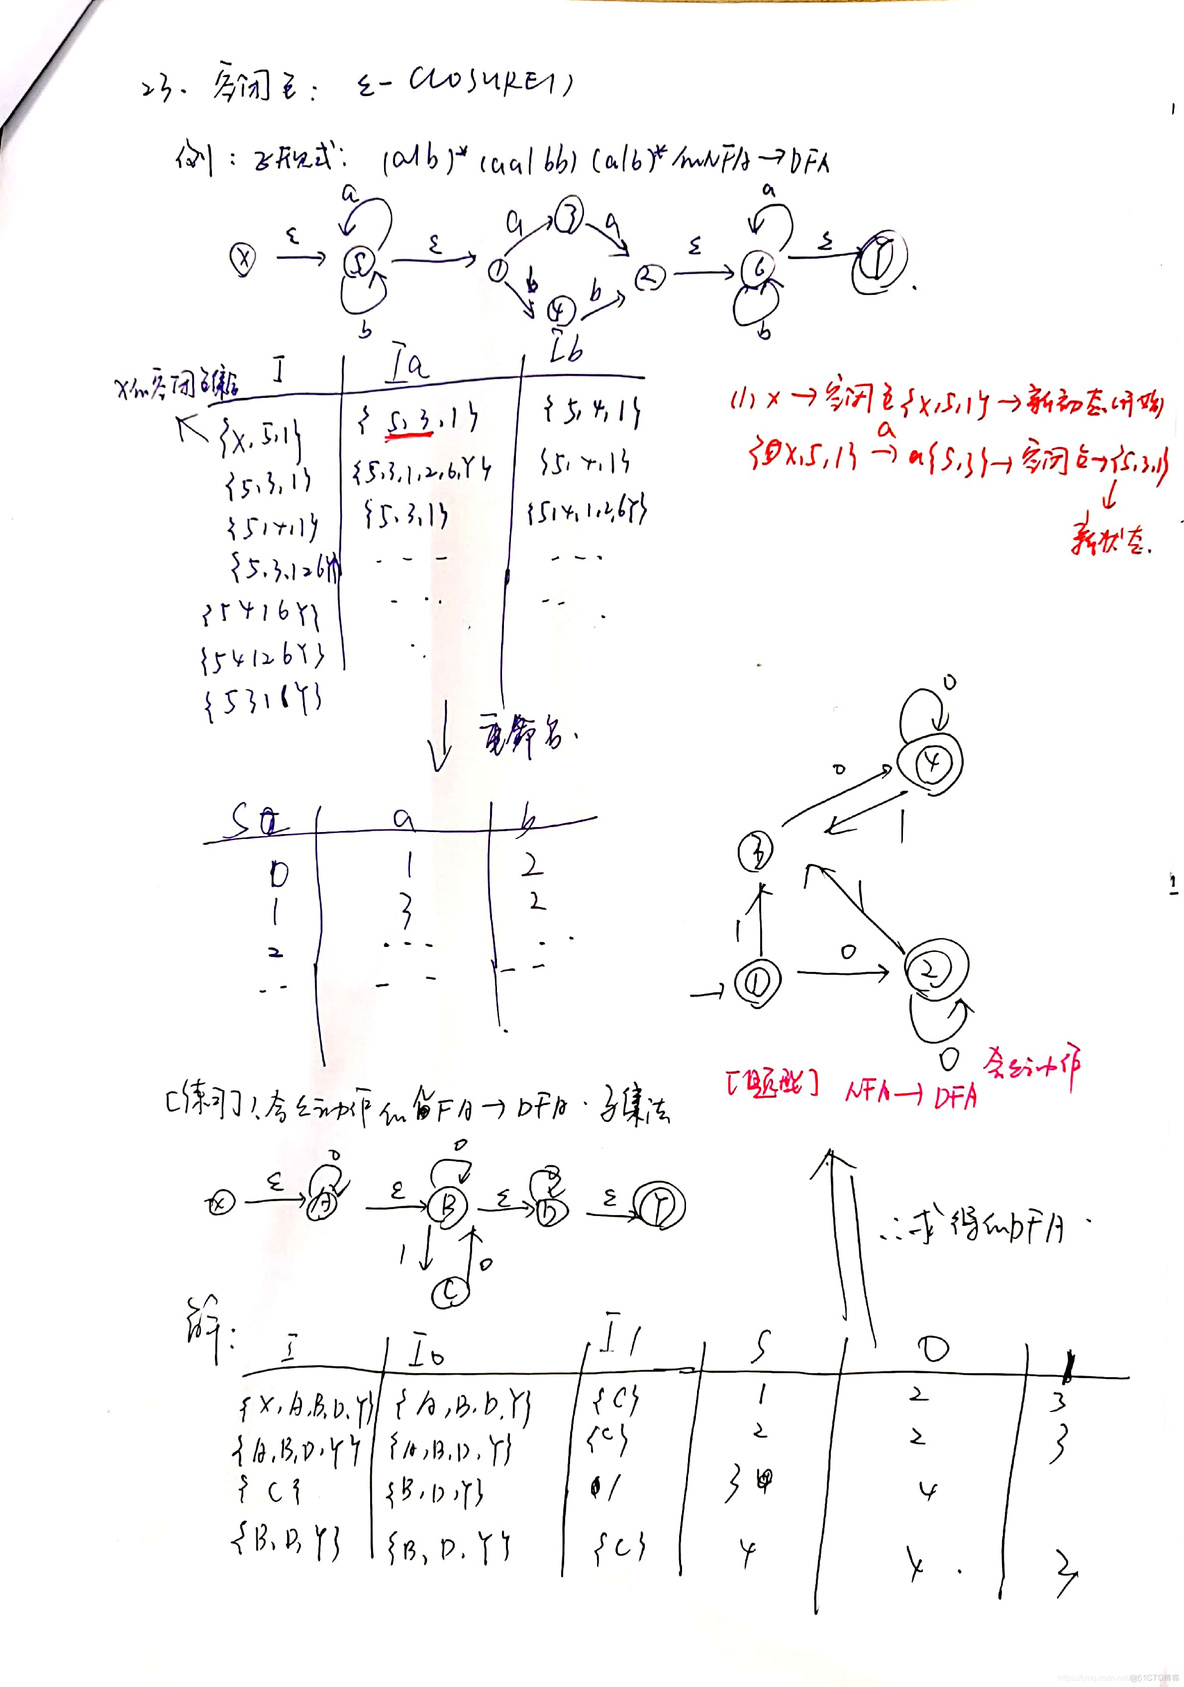 23. 空闭包: ε-CLOSURE()
例: 正规式: (a|b)* (aa|bb) (a|b)* 的NFA→DFA
a 3 a
X ε 5 ε 1 a a 2 ε 6 ε Y
b 4 b b b
x的空闭包集合 I Ia Ib
{X,5,1} {5,3,1} {5,4,1}
{5,3,1} {5,3,1,2,6,Y} {5,4,1}
{5,4,1} {5,3,1} {5,4,1,2,6Y}
{5,3,126Y} --- ---
{5416Y}
{54126Y}
{5316Y}
(1) x→空闭包{x,5,1}→新初态(开始)
{x,5,1} a→ a{5,3}→空闭包→{5,3,1}
新状态.
重命名.
S a b
0 1 2
1 3 2
2 ...
0
4
0 1
3
1 1
1 0 2
0
[题型] NFA→DFA 含空动作
[练习]1.含空动作的FA→DFA.子集法
0 0 0
X ε A ε B ε D ε Y
1 0
C
∴求得的DFA.
解:
I I0 I1 S 0 1
{X,A,B,D,Y} {A,B,D,Y} {C} 1 2 3
{A,B,D,Y} {A,B,D,Y} {C} 2 2 3
{C} {B,D,Y} / 3 4
{B,D,Y} {B,D,Y} {C} 4 4 3
@51CTO博客